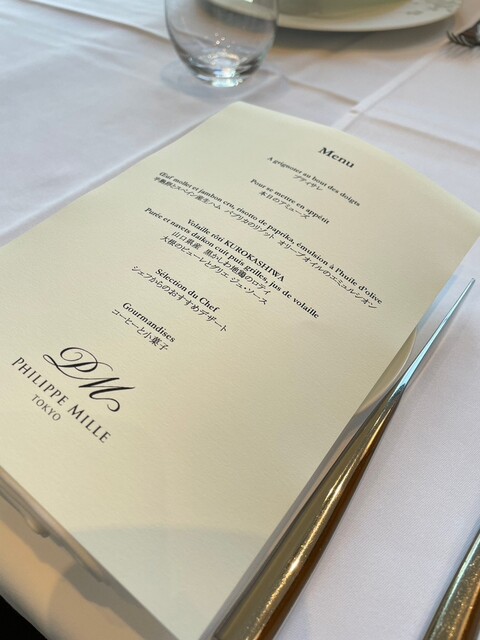 Menu
A grignoter au bout des doigts
プティサレ
Pour se mettre en appétit
本日のアミューズ
Œuf mollet et jambon cru, risotto de paprika, émulsion à l'huile d'olive
半熟卵とスペイン産生ハム パプリカのリゾット オリーブオイルのエミュルション
Volaille rôti KUROKASHIWA
Purée et navets daikon cuit puis grilles, jus de volaille
山口県産 黒かしわ地鶏のロティ
大根のピューレとグリエ ジュ・ソース
Sélection du Chef
シェフからのおすすめデザート
Gourmandises
コーヒーと小菓子
PM
PHILIPPE MILLE
TOKYO